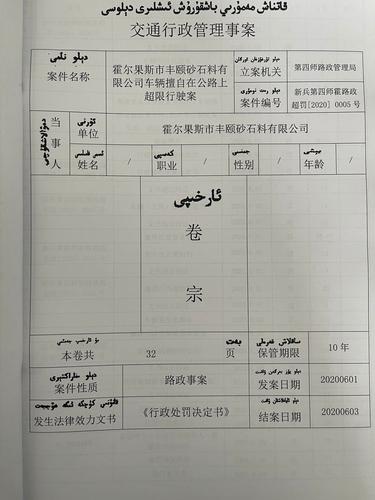 قاتناش مەمۇرىي باشقۇرۇش ئىشلىرى دېلوسى
交通行政管理事案
دېلو نامى
案件名称
霍尔果斯市丰颐砂石料有
限公司车辆擅自在公路上
超限行驶案
立案机关
第四师路政管理局
案件编号
新兵第四师霍路政
超罚[2020] 0005 号
当
事
人
ئورنى
单位
霍尔果斯市丰颐砂石料有限公司
姓名
/
كەسپى
职业
/
جىنسى
性别
/
يېشى
年龄
/
ئارخىپى
卷
宗
本卷共
32
بەت
页
保管期限
10 年
案件性质
路政事案
发案日期
20200601
发生法律效力文书
《行政处罚决定书》
结案日期
20200603